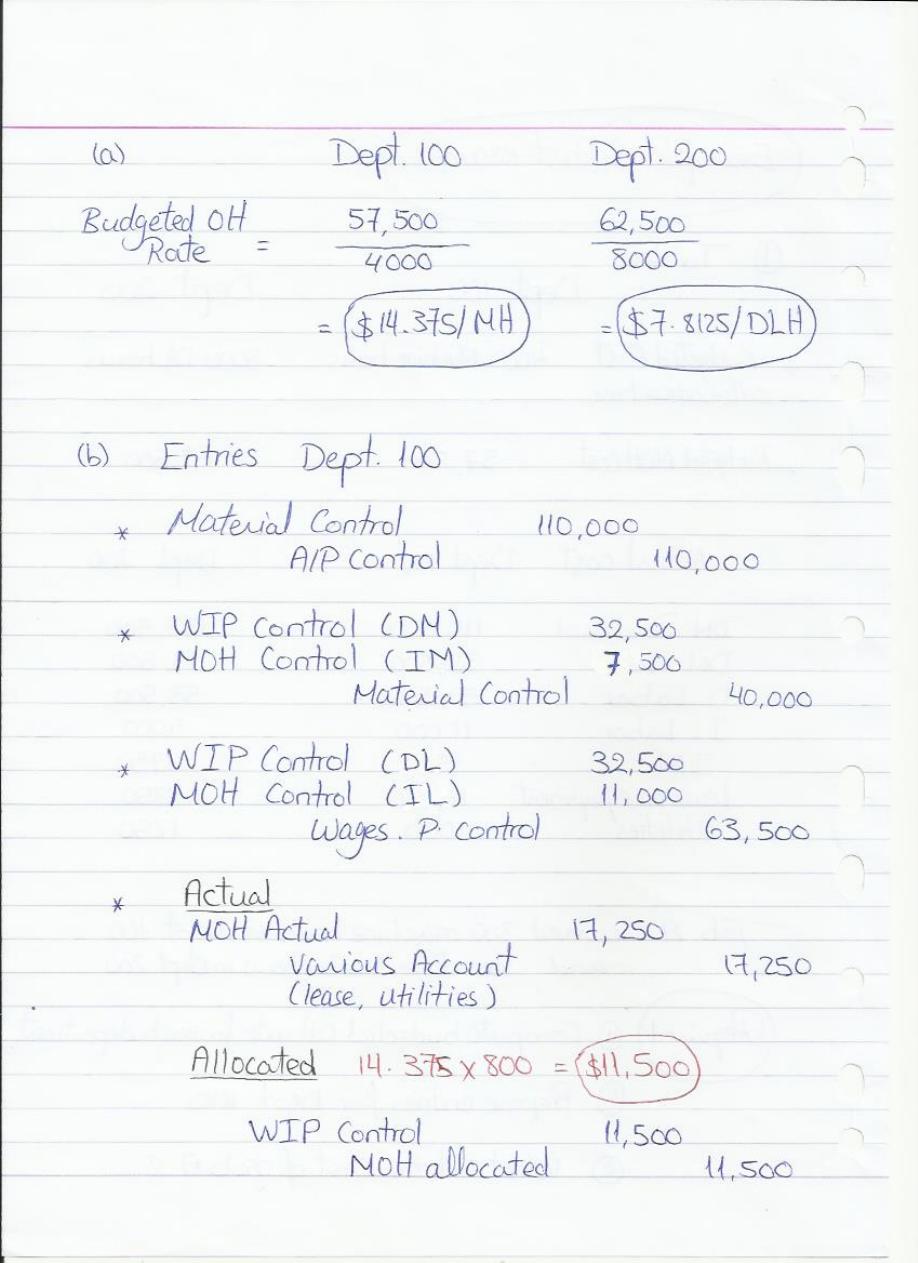 (a) Dept. 100 Dept. 200
Budgeted OH Rate = 57,500 / 4000 62,500 / 8000
= $14.375/MH = $7.8125/DLH
(b) Entries Dept. 100
* Material Control 110,000
A/P Control 110,000
* WIP Control (DM) 32,500
MOH Control (IM) 7,500
Material Control 40,000
* WIP Control (DL) 32,500
MOH Control (IL) 11,000
Wages. P. control 63,500
* Actual
MOH Actual 17,250
Various Account 17,250
(lease, utilities)
Allocated 14.375 x 800 = $11,500
WIP Control 11,500
MOH allocated 11,500